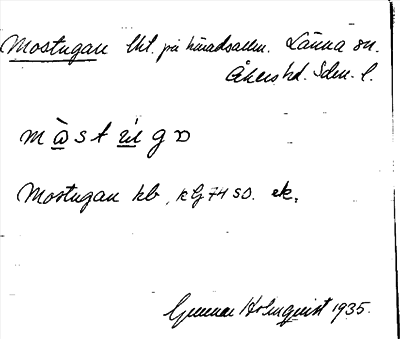 Mostugan lht. på häradsallm. Länna sn.
Åkers hd. Sdm. l.
Mostugan kb, KG 74 SO. ek.
Gunnar Holmquist 1935.